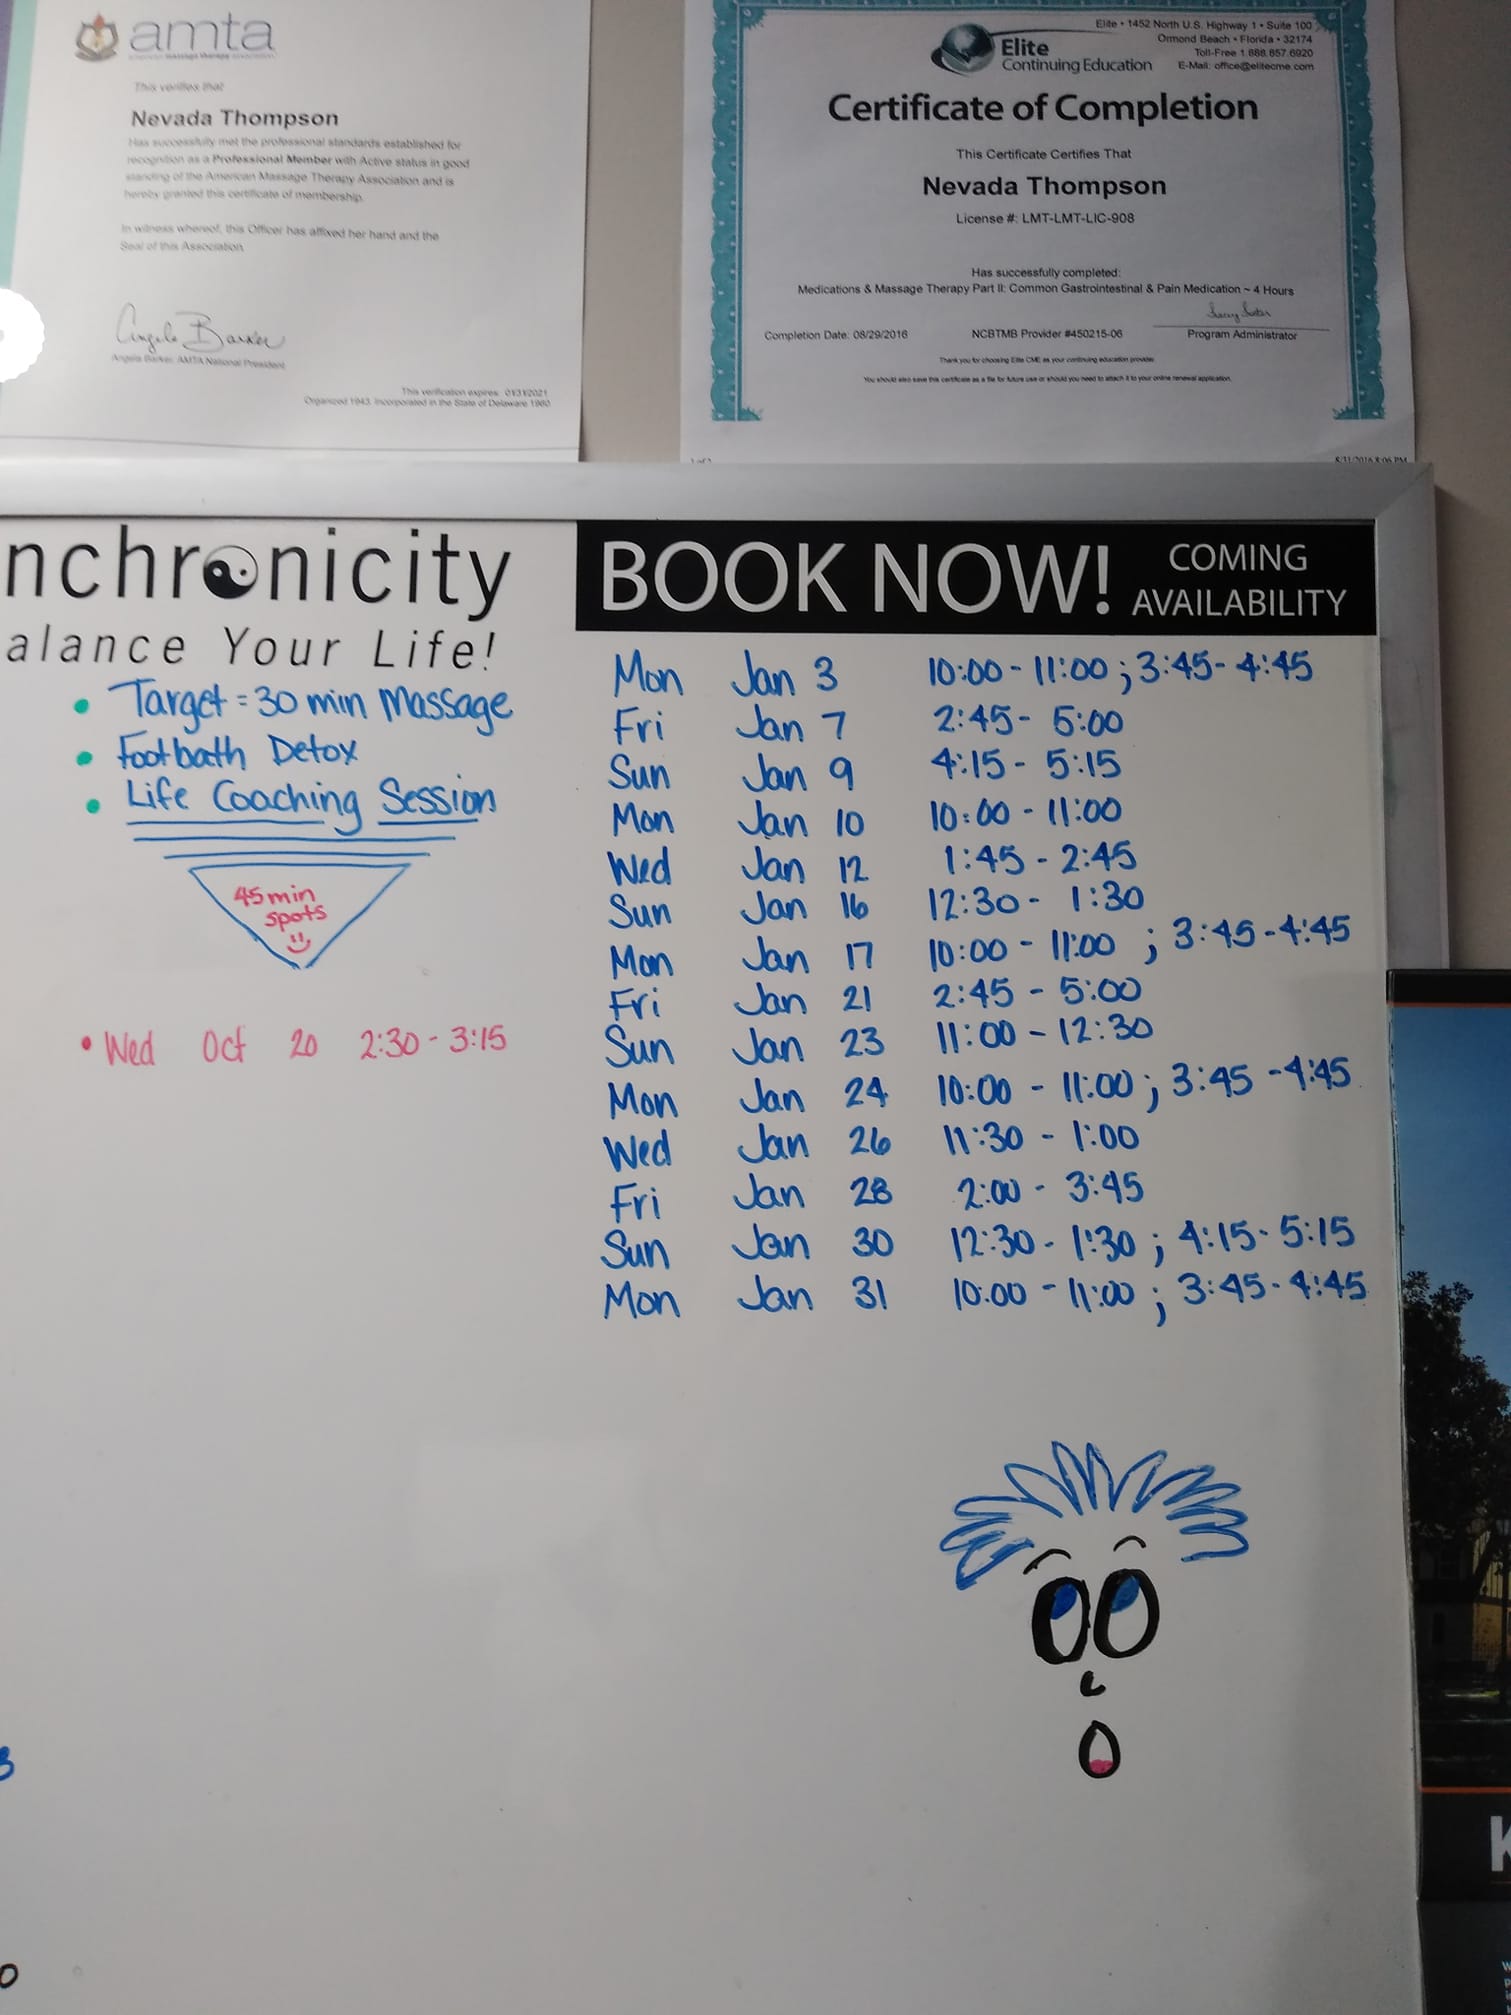 amta
This verifies that
Nevada Thompson
Has successfully met the professional standards established for
recognition as a Professional Member with Active status in good
standing of the American Massage Therapy Association and is
hereby granted this certificate of membership.
In witness whereof, this Officer has affixed her hand and the
Seal of this Association.
Angela Barker
Angela Barker, AMTA National President
This verification expires: 01/31/2021
Organized 1943, Incorporated in the State of Delaware 1960
Elite • 1452 North U.S. Highway 1 • Suite 100
Ormond Beach • Florida • 32174
Toll-Free 1.888.857.6920
E-Mail: office@elitecme.com
Elite
Continuing Education
Certificate of Completion
This Certificate Certifies That
Nevada Thompson
License #: LMT-LMT-LIC-908
Has successfully completed:
Medications & Massage Therapy Part II: Common Gastrointestinal & Pain Medication ~ 4 Hours
Completion Date: 08/29/2016
NCBTMB Provider #450215-06
Program Administrator
Thank you for choosing Elite CME as your continuing education provider.
You should also save this certificate as a file for future use or should you need to attach it to your online renewal application.
nchronicity
alance Your Life!
• Target = 30 min Massage
• Footbath Detox
• Life Coaching Session
45 min
spots
• Wed Oct 20 2:30 - 3:15
BOOK NOW! COMING
AVAILABILITY
Mon Jan 3 10:00 - 11:00 ; 3:45 - 4:45
Fri Jan 7 2:45 - 5:00
Sun Jan 9 4:15 - 5:15
Mon Jan 10 10:00 - 11:00
Wed Jan 12 1:45 - 2:45
Sun Jan 16 12:30 - 1:30
Mon Jan 17 10:00 - 11:00 ; 3:45 - 4:45
Fri Jan 21 2:45 - 5:00
Sun Jan 23 11:00 - 12:30
Mon Jan 24 10:00 - 11:00 ; 3:45 - 4:45
Wed Jan 26 11:30 - 1:00
Fri Jan 28 2:00 - 3:45
Sun Jan 30 12:30 - 1:30 ; 4:15 - 5:15
Mon Jan 31 10:00 - 11:00 ; 3:45 - 4:45
K